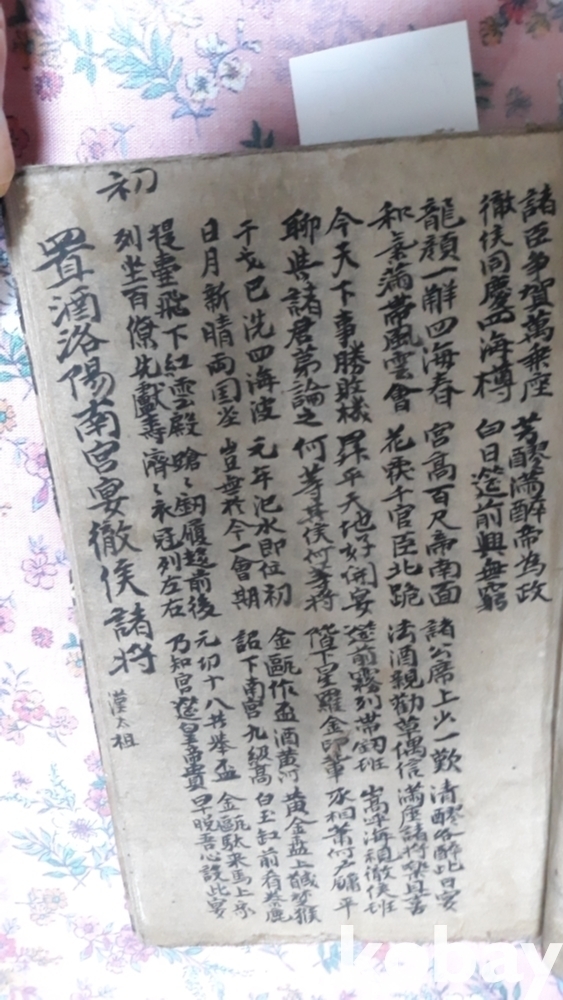 諸臣爭賀萬乘座 芳醪滿醉帝為政 諸公席上少一歡 清醪各醉此日宴
徹侯同慶四海樽 白日筵前興無窮 法酒親勸草偶信 滿座諸將樂且喜
龍顏一解四海春 宮高百尺帝南面
和氣滿帶風雲會 花 千官臣北跪 筵前霧列帶劒班 嵩呼海祝徹侯班
今天下事勝敗機 昇平天地好開宴 階下星羅金印輩 丞相蕭何戶牖平
聊與諸君第論之 何等其侯何等將 金甌作盃酒黃河 黃金 上馘楚猴
干戈已洗四海波 元年汜水即位初 詔下南宮九級高 白玉缸前有秦鹿
日月新晴兩國 豈無於今一會期 元功十八共舉盃 金甌馱來馬上樂
提壺飛下紅雲殿 蹌々劒履趨前後 乃知宮筵皇帝貴 吾心設此宴
列坐百僚先獻壽 濟々衣冠列左右
初
置酒洛陽南宮宴徹侯諸將 漢太祖
kobay